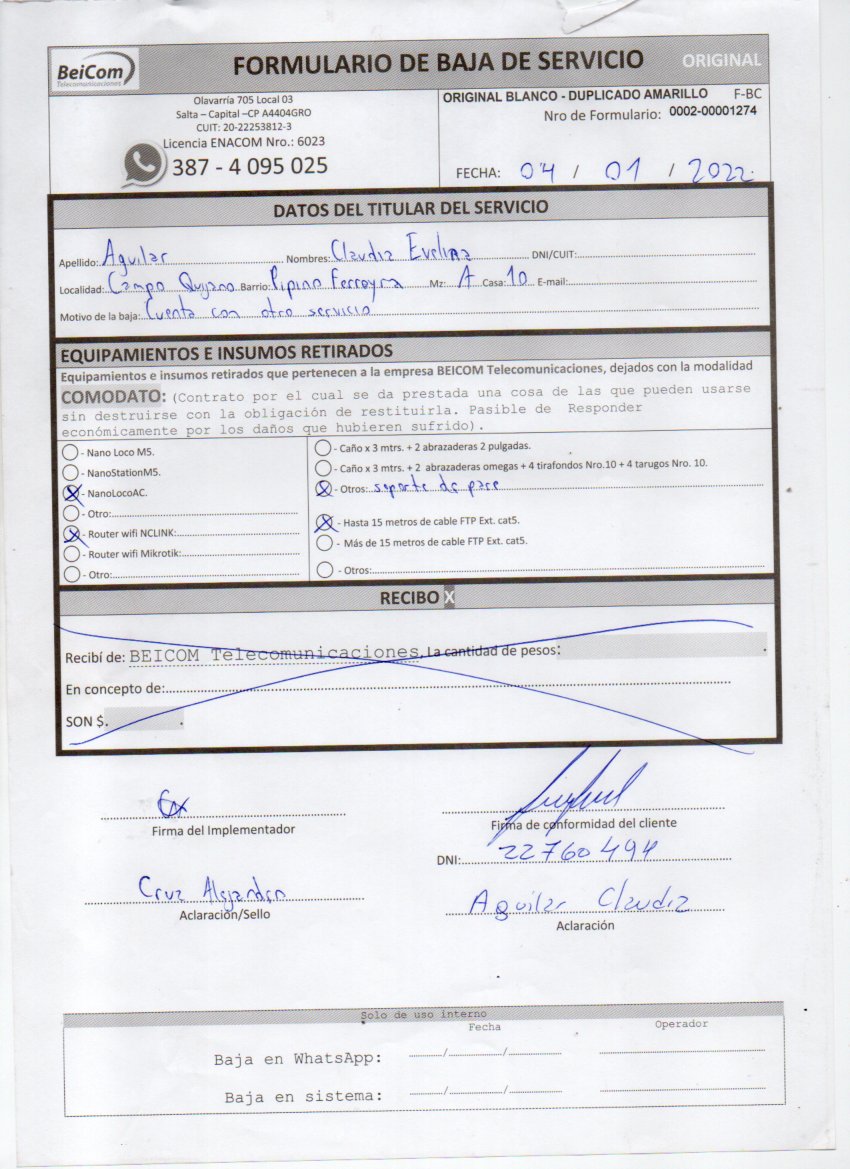 BeiCom
Telecomunicaciones
FORMULARIO DE BAJA DE SERVICIO ORIGINAL
Olavarría 705 Local 03
Salta – Capital –CP A4404GRO
CUIT: 20-22253812-3
Licencia ENACOM Nro.: 6023
387 - 4 095 025
ORIGINAL BLANCO - DUPLICADO AMARILLO F-BC
Nro de Formulario: 0002-00001274
FECHA: 04 / 01 / 2022
DATOS DEL TITULAR DEL SERVICIO
Apellido: Aguilar Nombres: Claudia Evelina DNI/CUIT:
Localidad: Campo Quijano Barrio: Pipino Ferreyra Mz: A Casa: 10 E-mail:
Motivo de la baja: Cuenta con otro servicio
EQUIPAMIENTOS E INSUMOS RETIRADOS
Equipamientos e insumos retirados que pertenecen a la empresa BEICOM Telecomunicaciones, dejados con la modalidad
COMODATO: (Contrato por el cual se da prestada una cosa de las que pueden usarse
sin destruirse con la obligación de restituirla. Pasible de Responder
económicamente por los daños que hubieren sufrido).
- Nano Loco M5.
- NanoStationM5.
X - NanoLocoAC.
- Otro:
X - Router wifi NCLINK:
- Router wifi Mikrotik:
- Otro:
- Caño x 3 mtrs. + 2 abrazaderas 2 pulgadas.
- Caño x 3 mtrs. + 2 abrazaderas omegas + 4 tirafondos Nro.10 + 4 tarugos Nro. 10.
X - Otros: soporte de pare
X - Hasta 15 metros de cable FTP Ext. cat5.
- Más de 15 metros de cable FTP Ext. cat5.
- Otros:
RECIBO X
Recibí de: BEICOM Telecomunicaciones, La cantidad de pesos:
En concepto de:
SON $.
Firma del Implementador
Firma de conformidad del cliente
DNI: 22760494
Cruz Alejandro
Aclaración/Sello
Aguilar Claudia
Aclaración
Solo de uso interno
Fecha Operador
Baja en WhatsApp: / /
Baja en sistema: / /